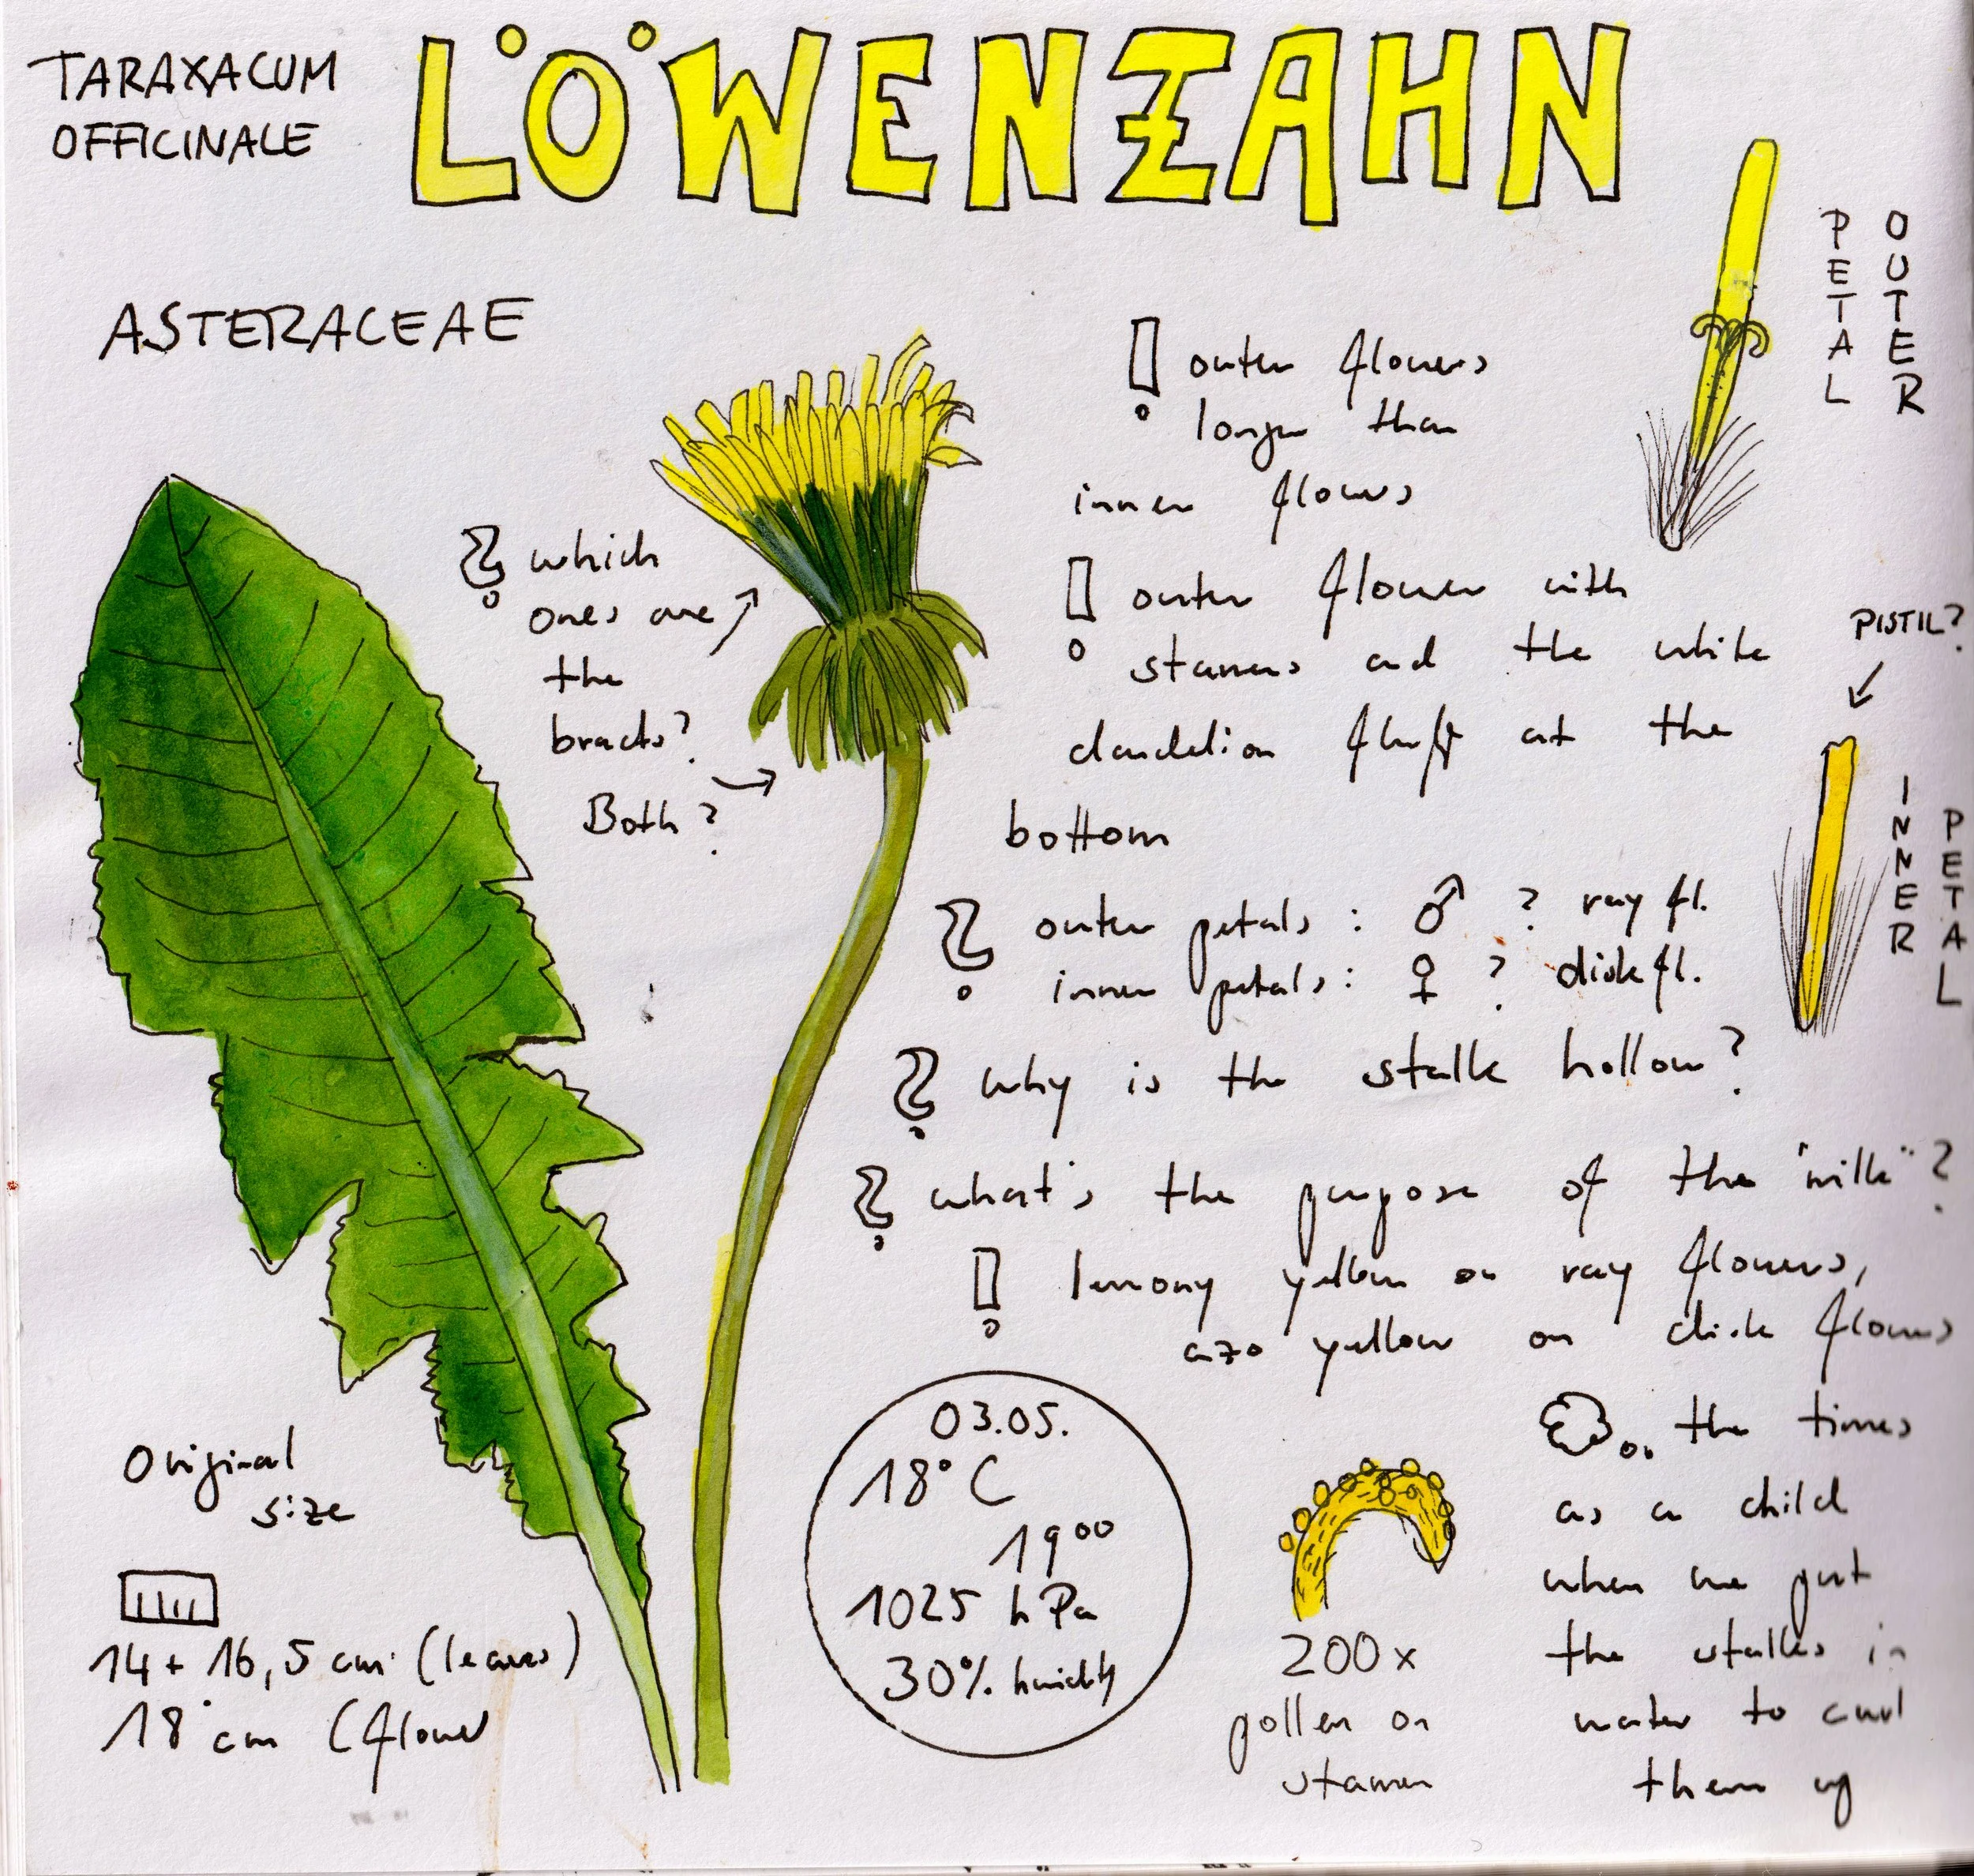 TARAXACUM
OFFICINALE
LÖWENZAHN
ASTERACEAE
! outer flowers
longer than
inner flowers
OUTER
PETAL
? which
ones are
the
bracts?
Both?
! outer flower with
stamens and the white
dandelion fluff at the
bottom
PISTIL?
INNER
PETAL
? outer petals: ♂ ? ray fl.
inner petals: ♀ ? disk fl.
? why is the stalk hollow?
? what's the purpose of the "milk"?
! lemony yellow on ray flowers,
azo yellow on disk flowers
Original
size
14 + 16,5 cm (leaves)
18 cm (flower
03.05.
18°C
19°°
1025 hPa
30% humidity
200x
pollen on
stamen
the times
as a child
when we put
the stalks in
water to curl
them up